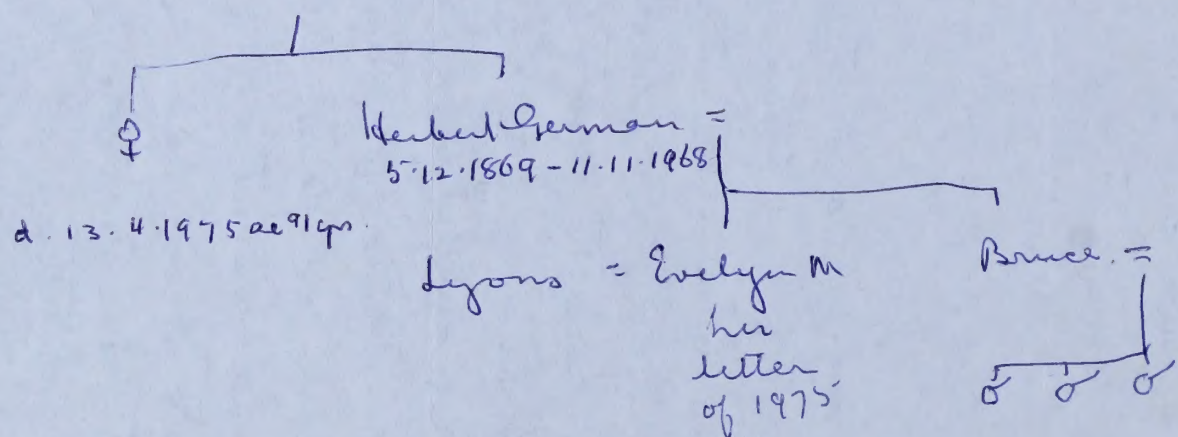 ♀
Herbert German =
5.12.1869 - 11.11.1968
d. 13.4.1975 ae 91 yrs.
Lyons = Evelyn M
her
letter
of 1975
Bruce. =
♂ ♂ ♂